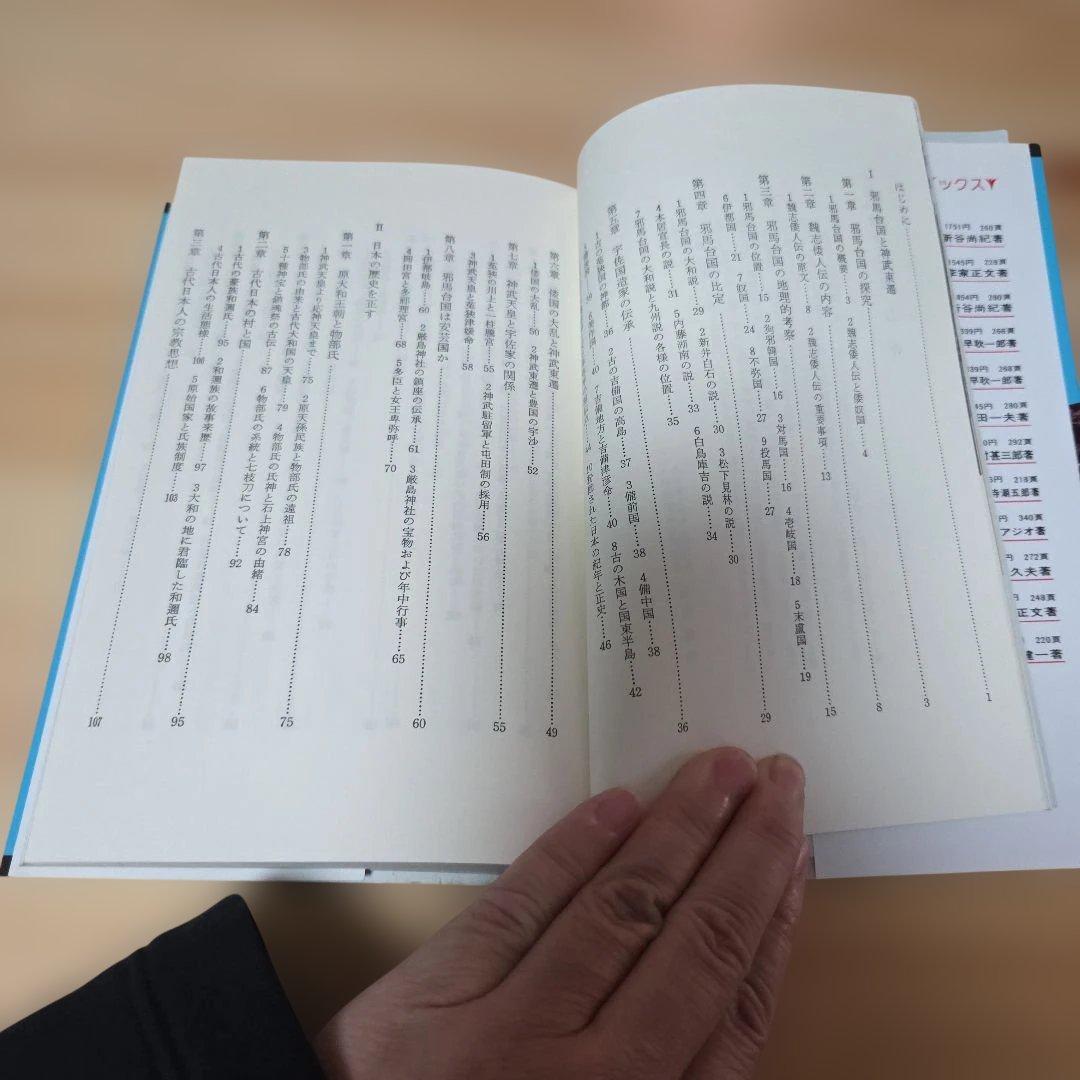 はじめに……1
I 邪馬台国と神武東遷
第一章 邪馬台国の探究……3
1邪馬台国の概要……3 2魏志倭人伝と倭奴国……4
第二章 魏志倭人伝の内容……8
1魏志倭人伝の原文……8 2魏志倭人伝の重要事項……13
第三章 邪馬台国の地理的考察……15
1邪馬台国の位置……15 2狗邪韓国……16 3対馬国……16 4壱岐国……18 5末盧国……19
6伊都国……21 7奴国……24 8不弥国……27 9投馬国……27
第四章 邪馬台国の比定……29
1邪馬台国の大和説……29 2新井白石の説……30 3松下見林の説……30
4本居宣長の説……31 5内藤湖南の説……33 6白鳥庫吉の説……34
7邪馬台国の大和説と九州説の各様の位置……35
第五章 宇佐国造家の伝承……36
36 2古の吉備国の高島……37 3備前国……38 4備中国……38
40 7吉備地方と吉備津彦命……40 8古の木国と国東半島……42
日本の紀年と正史……46
第六章 倭国の大乱と神武東遷……49
1倭国の大乱……50 2神武東遷と豊国の宇沙……52
第七章 神武天皇と宇佐家の関係……55
1菟狭の川上と一柱騰宮……55 2神武駐留軍と屯田制の採用……56
3神武天皇と菟狭津媛命……58
第八章 邪馬台国は安芸国か……60
1伊都岐島……60 2厳島神社の鎮座の伝承……61 3厳島神社の宝物および年中行事……65
4岡田宮と多祁理宮……68 5多臣と女王卑弥呼……70
II 日本の歴史を正す
第一章 原大和王朝と物部氏……75
1神武天皇より応神天皇まで……75 2原天孫民族と物部氏の遠祖……78
3物部氏の由来と古代大和国の天皇……79 4物部氏の氏神と石上神宮の由緒……84
5十種神宝と鎮魂祭の古伝……87 6物部氏の系統と七枝刀について……92
第二章 古代日本の村と国……95
1古代の豪族和邇氏……95 2和邇族の故事来歴……97 3大和の地に君臨した和邇氏……98
4古代日本人の生活態様……100 5原始国家と氏族制度……103
第三章 古代日本人の宗教思想……107
ブックス
1751円 260頁
新谷尚紀著
1545円 228頁
李家正文著
260頁
新谷尚紀著
266頁
早秋一郎著
268頁
早秋一郎著
280頁
田一夫著
292頁
甚三郎著
218頁
寺瀬五郎著
340頁
アジオ著
272頁
久夫著
248頁
正文著
220頁
健一著